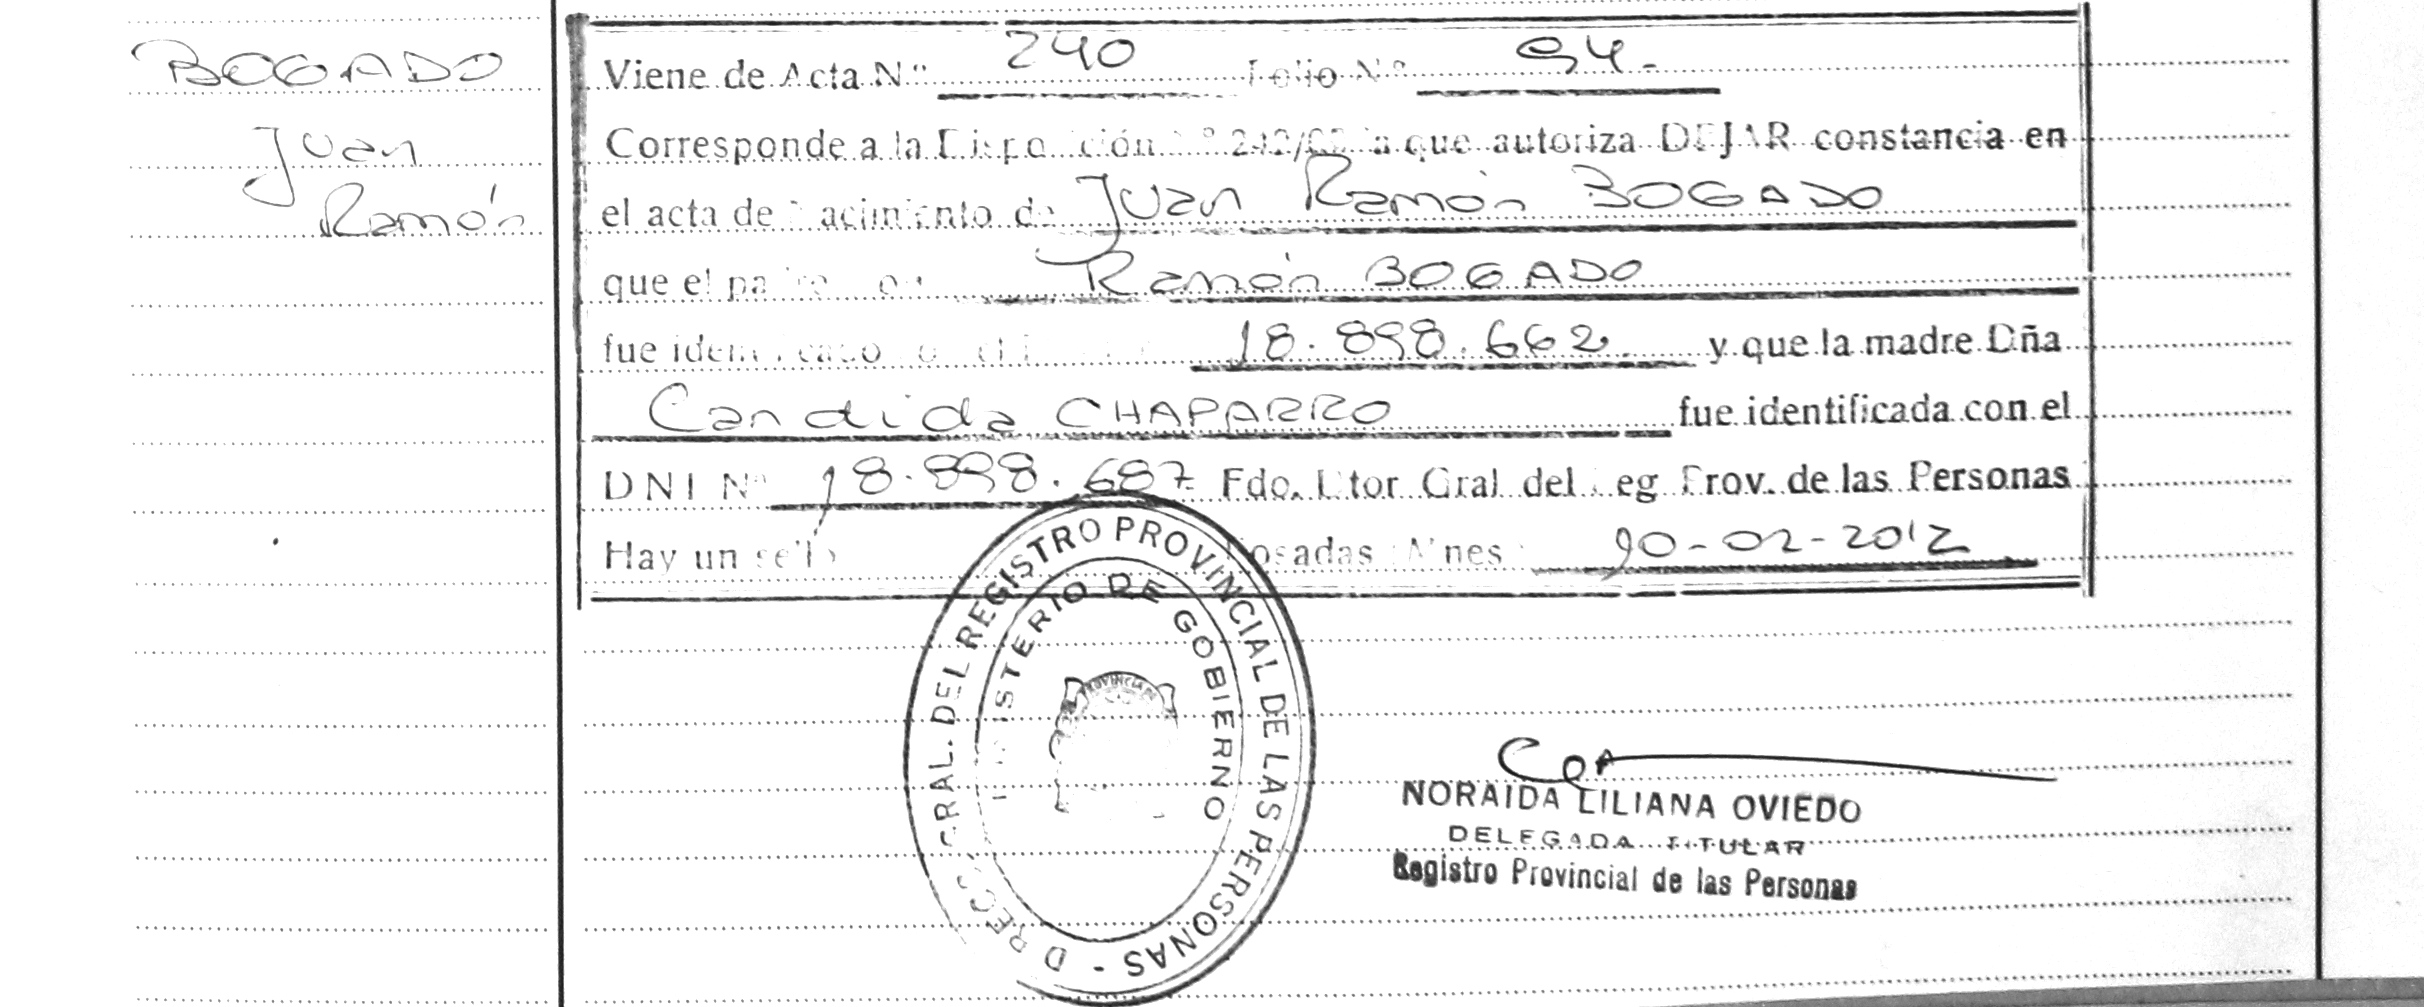 BOGADO
Juan
Ramón
Viene de Acta N° 240 Folio N° 94.
Corresponde a la Disposición que autoriza DEJAR constancia en
el acta de nacimiento de Juan Ramón BOGADO
que el padre Ramón BOGADO
fue identificado 18.898.662 y que la madre Dña
Candida CHAPARRO fue identificada con el
DNI N° 18.898.687 Fdo. Dtor Gral del Reg Prov. de las Personas
Hay un sello Posadas Mnes 20-02-2012
DIRECC. GRAL. DEL REGISTRO PROVINCIAL DE LAS PERSONAS -
MINISTERIO DE GOBIERNO
PROVINCIA DE
NORAIDA LILIANA OVIEDO
DELEGADA TITULAR
Registro Provincial de las Personas